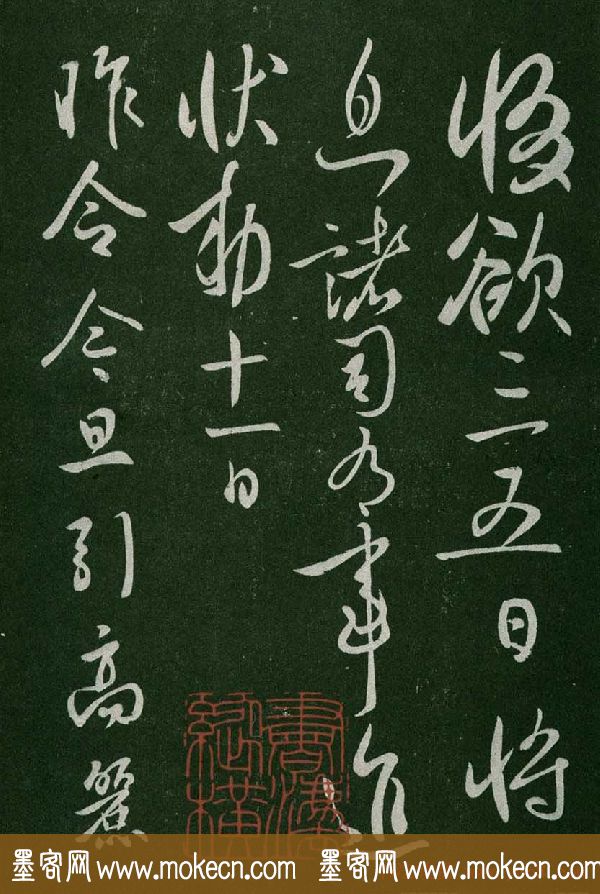 欲三五日將
息諸司有事
狀勅十一日
昨令今旦引高麗
墨客网 www.mokecn.com 墨客网 www.mokecn.com